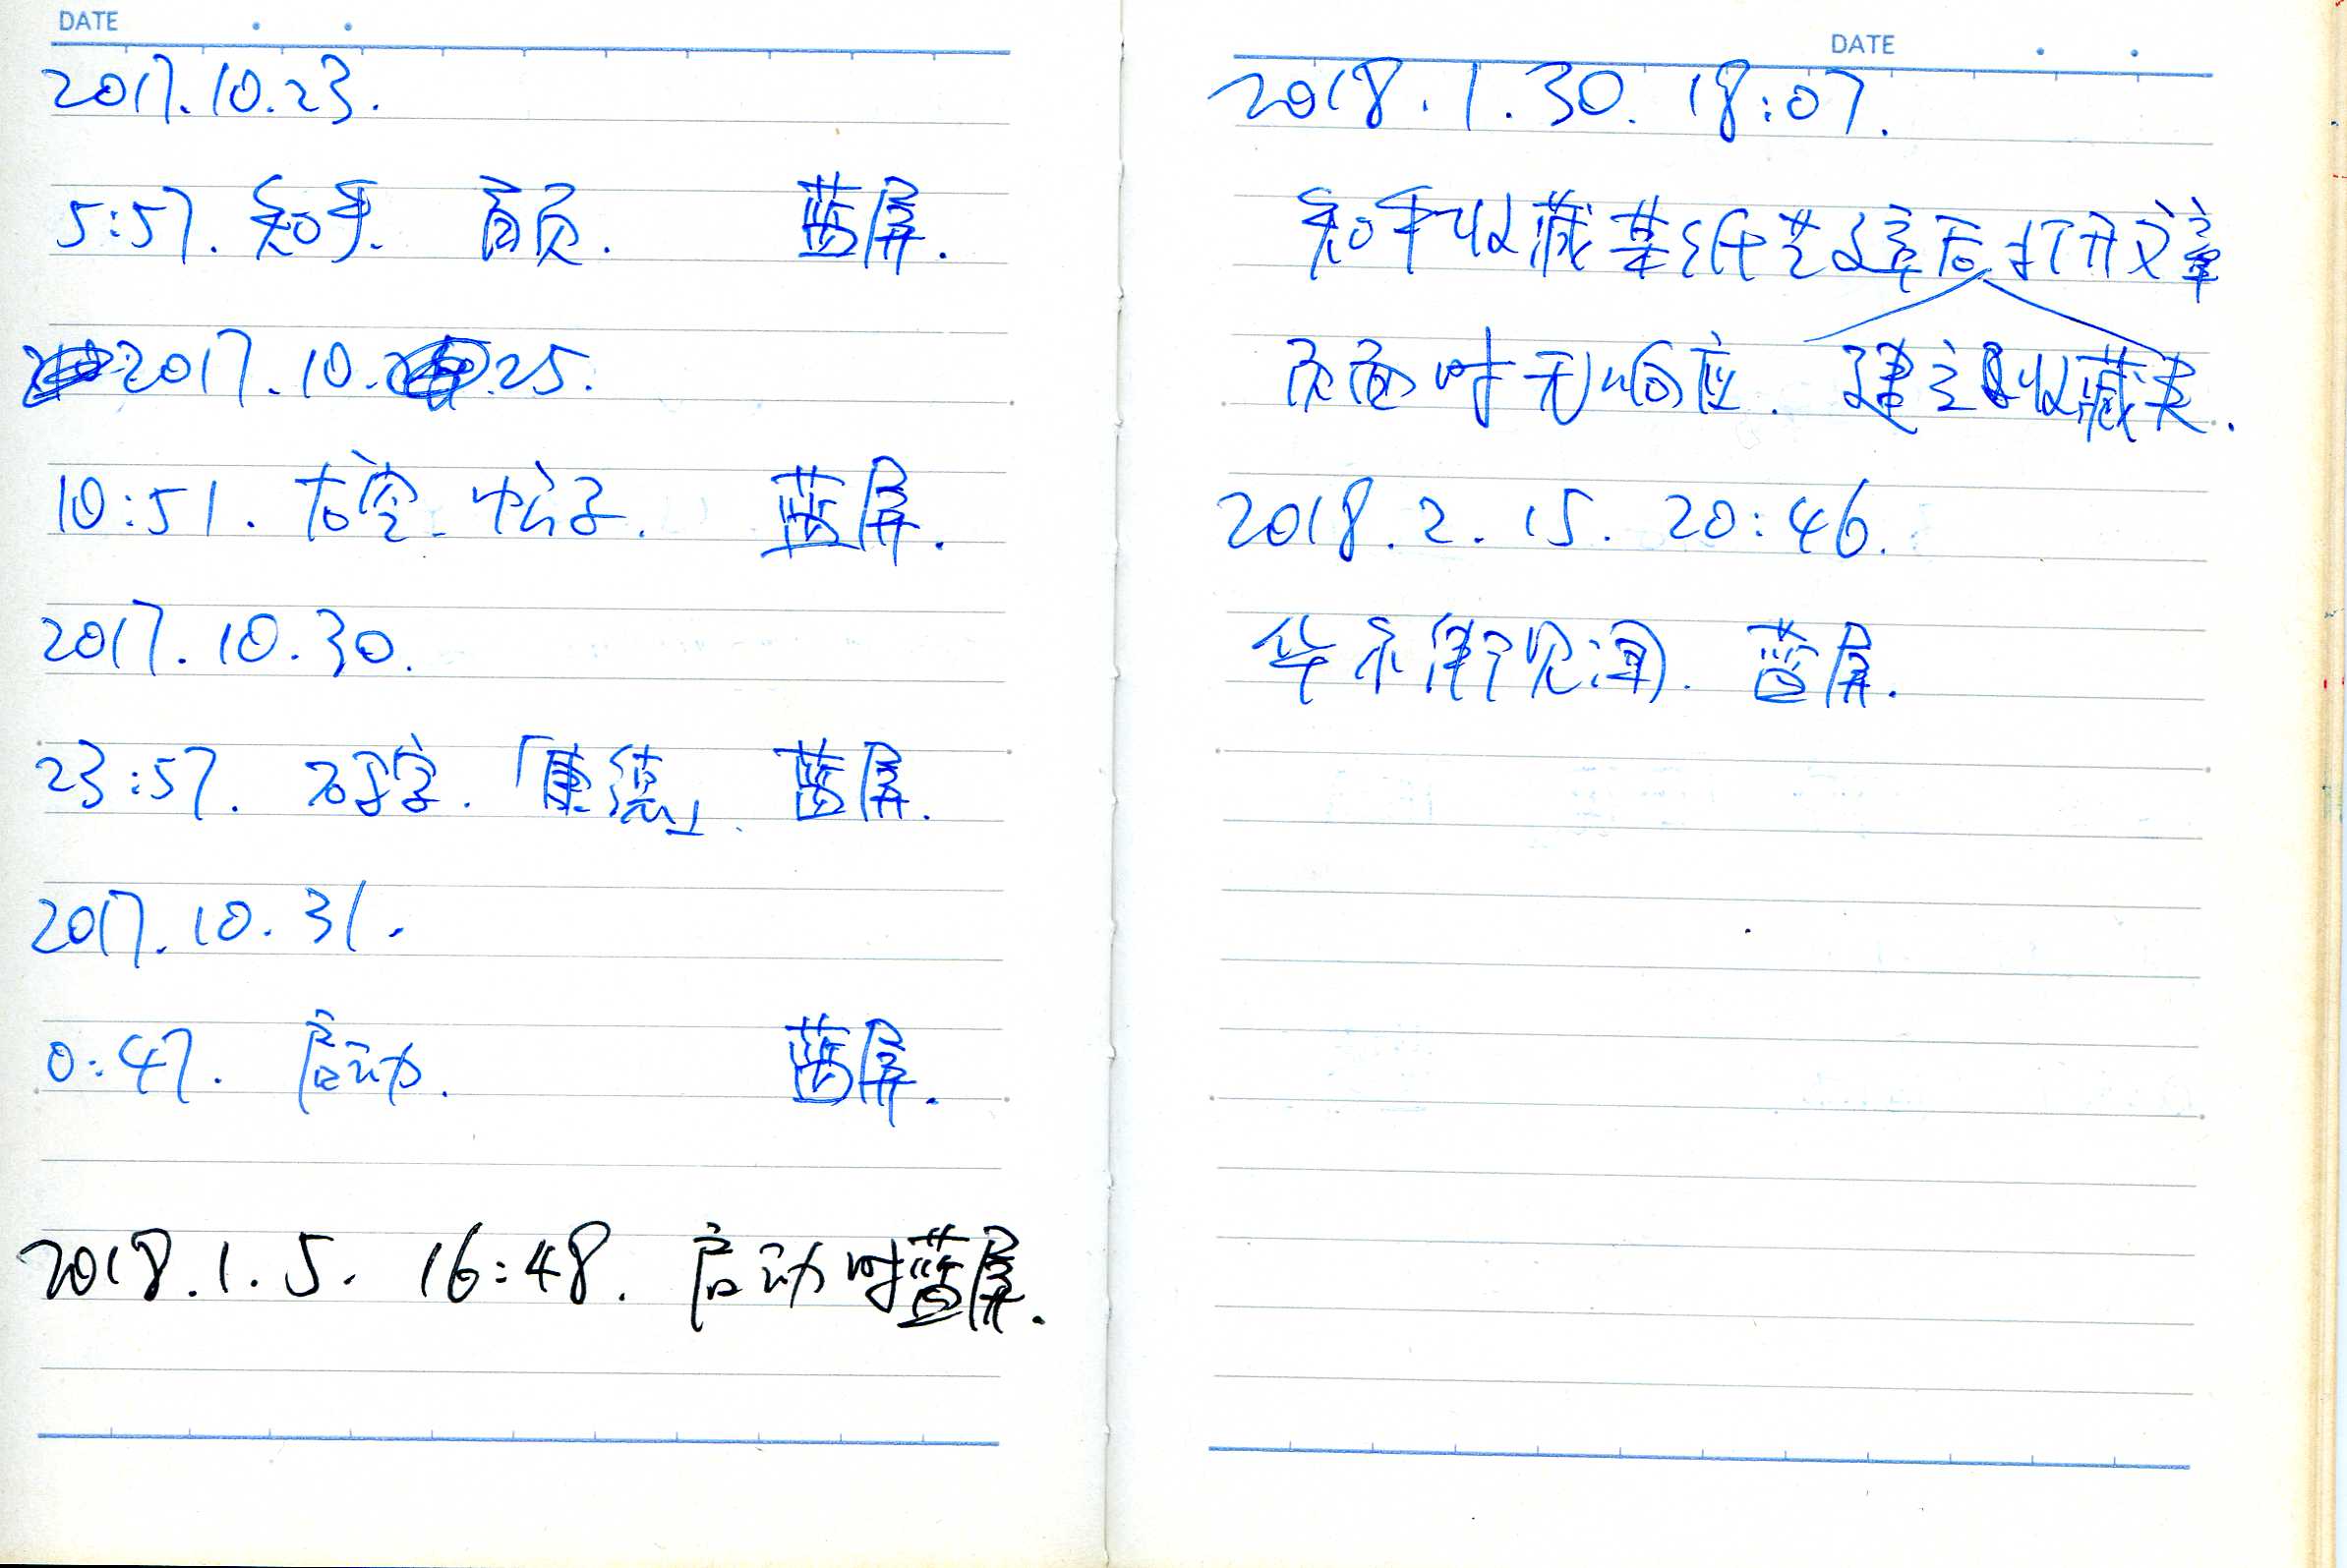 DATE
2017.10.23.
5:57. 知乎. 首页. 蓝屏.
2017.10.25.
10:51. 太空. 帖子. 蓝屏.
2017.10.30.
23:57. 「康德」. 蓝屏.
2017.10.31.
0:47. 启动. 蓝屏.
2018.1.5. 16:48. 启动时蓝屏.
DATE
2018.1.30. 18:07.
知乎收藏某纸艺文章后打开文章
页面时无响应. 建立收藏夹.
2018.2.15. 20:46.
华尔街见闻. 蓝屏.